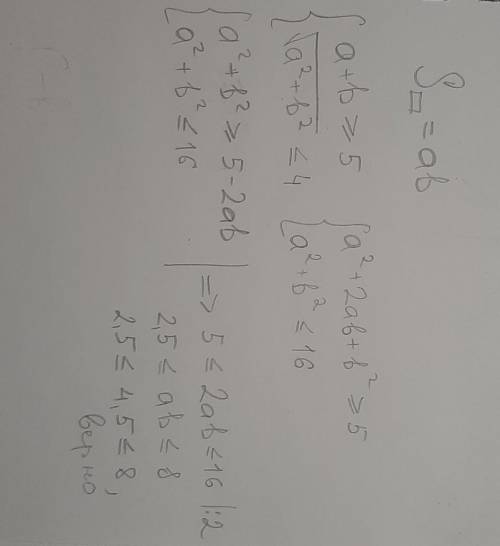 S□ = ab
{ a + b ≥ 5
{ √a² + b² ≤ 4
{ a² + 2ab + b² ≥ 5
{ a² + b² ≤ 16
{ a² + b² ≥ 5 - 2ab
{ a² + b² ≤ 16
| => 5 ≤ 2ab ≤ 16 |:2
2,5 ≤ ab ≤ 8
2,5 ≤ 4,5 ≤ 8,
верно